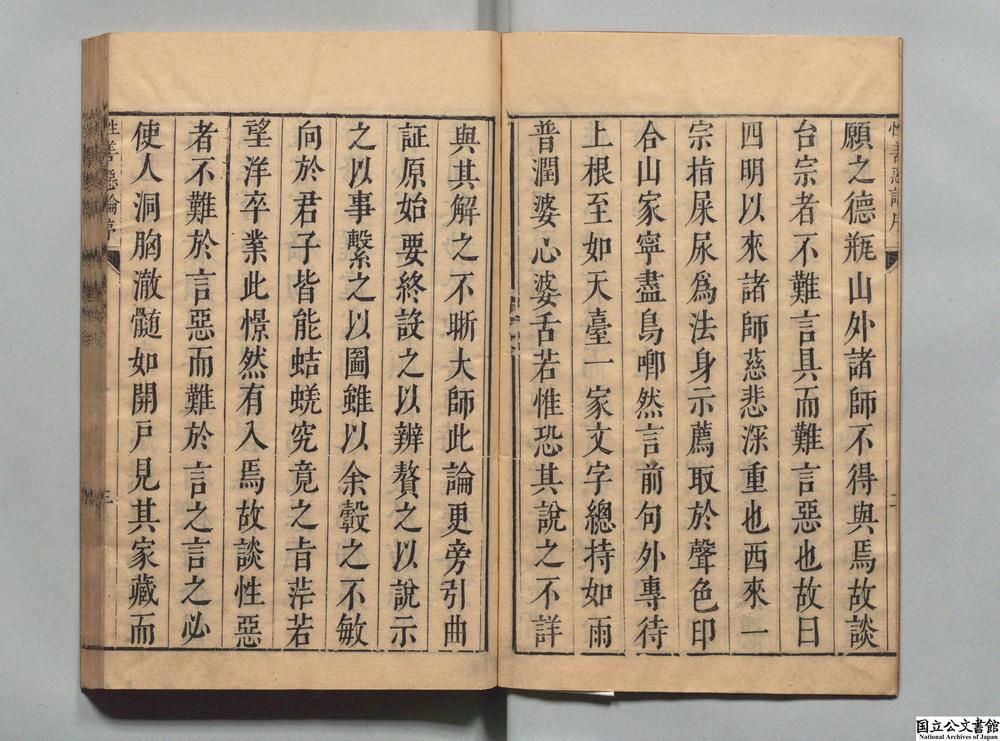 願之德瓶山外諸師不得與焉故談
台宗者不難言具而難言惡也故曰
四明以來諸師慈悲深重也西來一
宗指屎尿爲法身示薦取於聲色印
合山家寧盡鳥啣然言前句外專待
上根至如天臺一家文字總持如雨
普潤婆心婆舌若惟恐其說之不詳
與其解之不晰大師此論更旁引曲
証原始要終設之以辨贅之以說示
之以事繫之以圖雖以余瞉之不敏
向於君子皆能蛣蜣究竟之旨茫若
望洋卒業此憬然有入焉故談性惡
者不難於言惡而難於言之言之必
使人洞胸澈髓如開戸見其家藏而
性善惡論序
二
性善惡論序
三
国立公文書館
National Archives of Japan